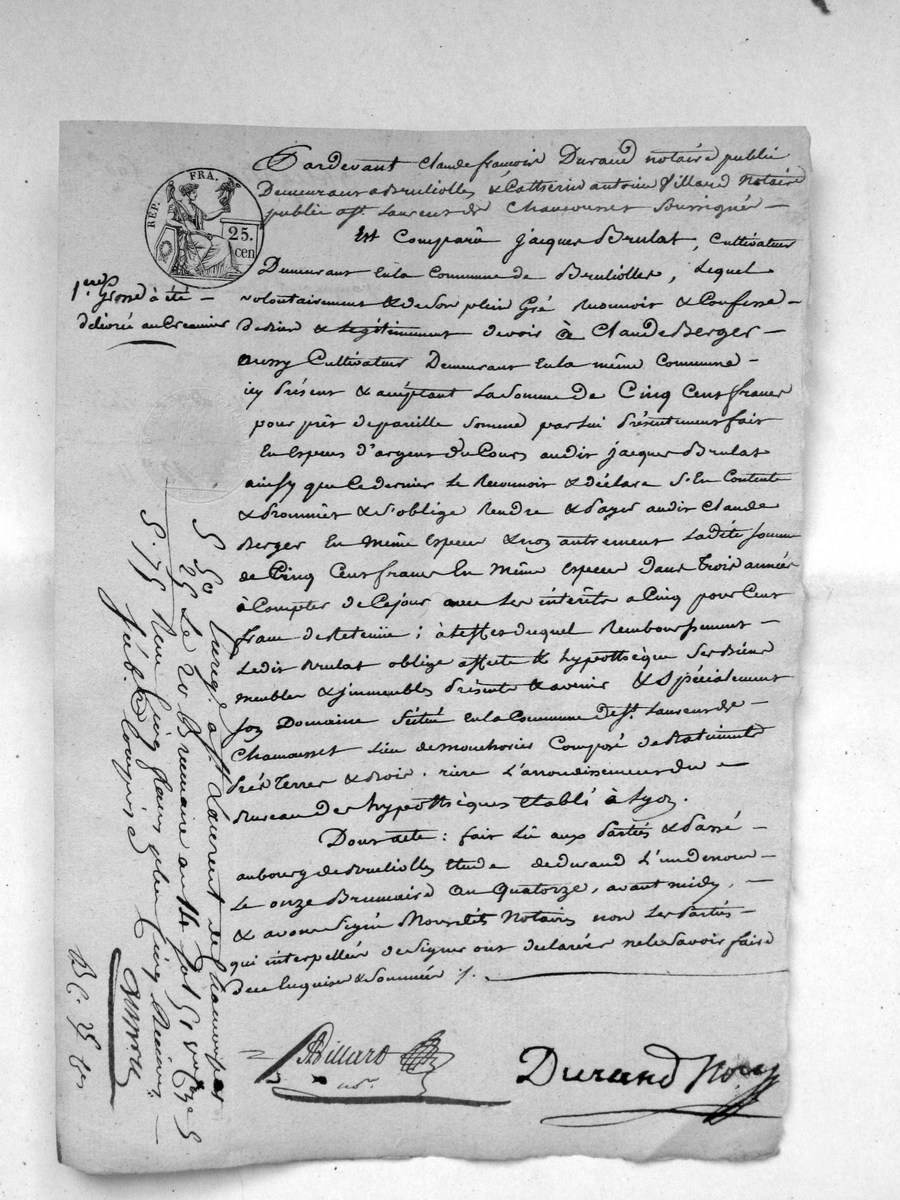 RÉP. FRA.
25. cen
Pardevant Claude françois Durand notaire public
Demeurant a Brulliolles & Catherin antoine Villard Notaire
public a St. Laurent de Chamousset
Est Comparû Jacques Brulat, Cultivateur
Demeurant En la Commune de Brulliolles, Lequel
volontairement & de Son plein Gré Reconnoit & Confesse
de bien & Legitimement devoir à Claude Berger
aussy Cultivateur Demeurant En la même Commune
icy Présent & acceptant La Somme De Cinq Cent francs
pour prêt de pareille Somme par Lui Présentement fait
En Especes d'argent du Cours audit Jacques Brulat
ainsy que Ce dernier Le Reconnoit & déclare S'En Contente
& Prommet & S'oblige Rendre & Payer audit Claude
Berger En Même Espece & non autrement Ladite Somme
de Cinq Cent francs En Même Especes Dans Trois années
à Compter de Ce jour avec Les interêts a Cinq pour Cent
franc de Retenue ; à L'effet duquel Remboursement
Ledit Brulat oblige affecte & hypothèque Ses Biens
meubles & immeubles Présents & avenir & Spécialement
son Domaine Scitué En la Commune de St. Laurent de
Chamousset Lieu de Composé de Batiments
Prés Terres & Bois, rière L'arrondissement du
Bureau des hypothèques Etabli à Lyon.
Dont acte : fait Lû aux Parties & Passé
au bourg de Brulliolles Etude de Durand L'un de nous
Le onze Brumaire an Quatorze, avant midy,
& avons Signé Nousdits Notaires non Les Parties
qui interpellées de Signer ont declarées ne le Savoir faire
de ce Enquises & Sommées ./.
Villard
nore.
Durand Nore
1ere grosse à été
délivrée au Creancier
Enregé. a St. Laurent de Chamousset
Le 20 Brumaire an 14 fol 51
Reçu Cinq francs